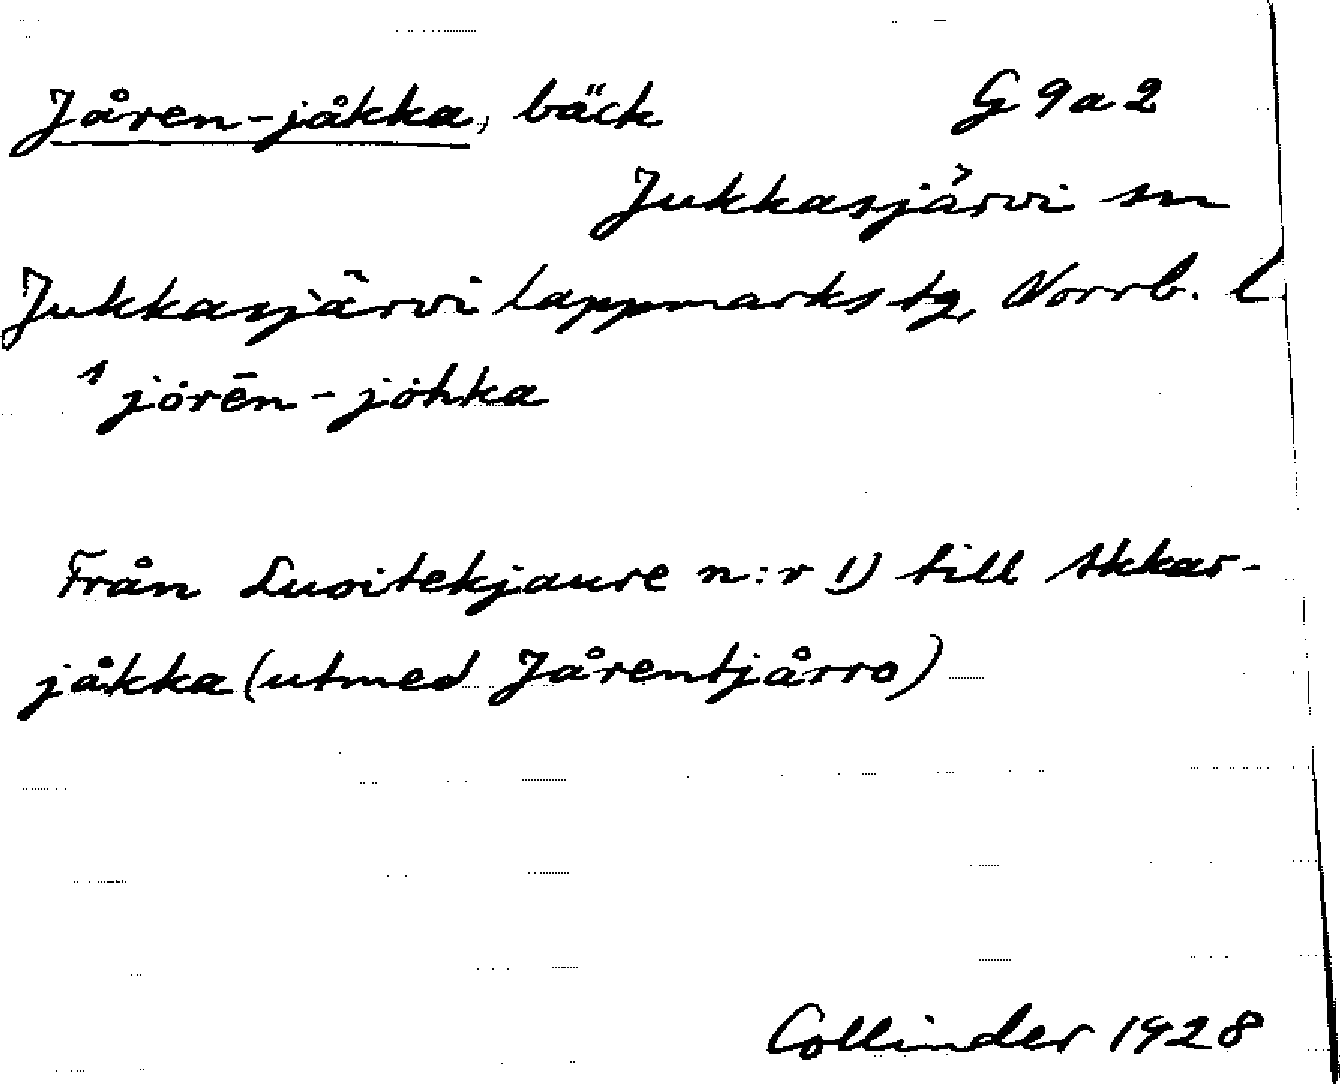 Jåren-jåkka, bäck G 9 a 2
Jukkasjärvi sn
Jukkasjärvi lappmarks tg, Norrb. l.
jȯrēn-jȯhka
Från Luoitekjaure n:r 1) till Akkar-
jåkka (utmed Jårentjårro)
Collinder 1928